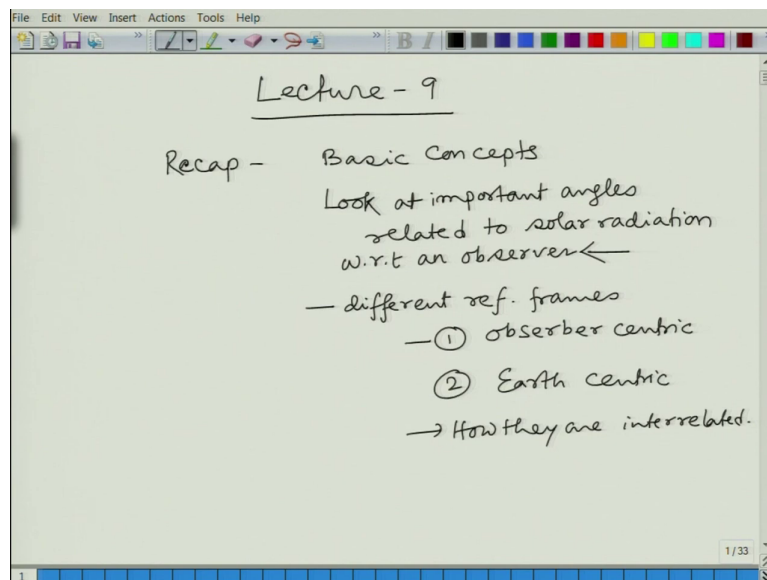 File Edit View Insert Actions Tools Help
B I
Lecture - 9
Recap - Basic Concepts
Look at important angles
related to solar radiation
w.r.t an observer ←
— different ref. frames
— ① obserber centric
② Earth centric
→ How they are interrelated.
1 / 33
1